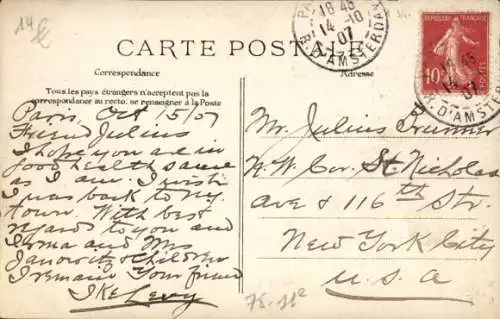 14 €
18 45
14-10
07
R. D'AMSTERDAM
REPUBLIQUE FRANÇAISE
10
POSTES
CARTE POSTALE
Correspondance
Adresse
Tous les pays étrangers n'acceptent pas la
correspondance au recto. se renseigner à la Poste
Paris, Oct 15/07
Friend Julius
I hope you are in
good health same
as I am. I wish
I was back to my
town. With best
regards to you and
Irma and Mrs
Janowitz & Children
I remain Your friend
Ike Levy
Mr. Julius
N.W. Cor. St. Nicholas
Ave & 116th Str.
New York City
U.S.A
75-